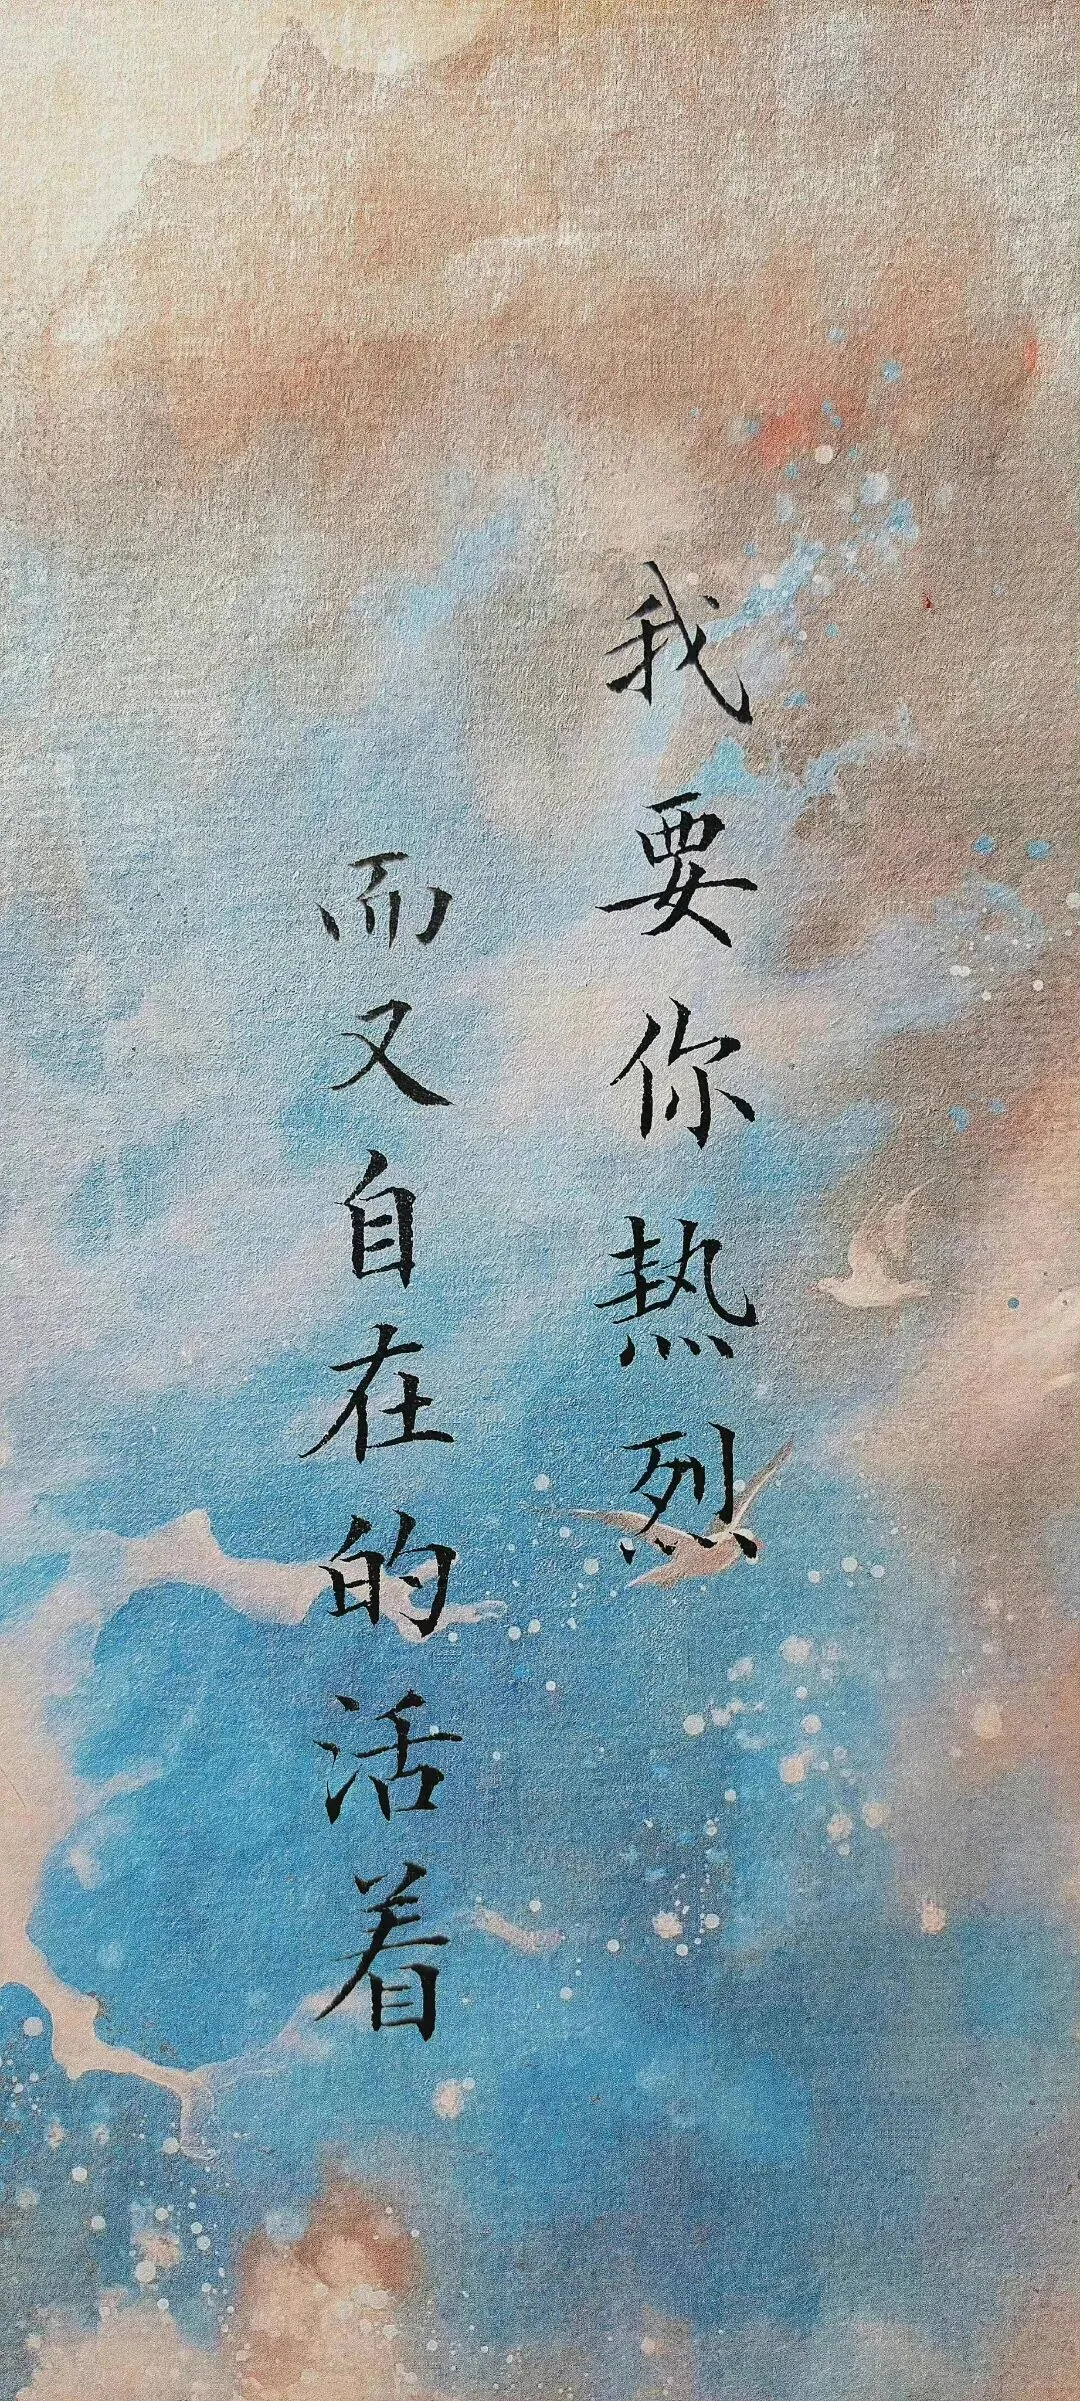 我要你热烈
而又自在的活着